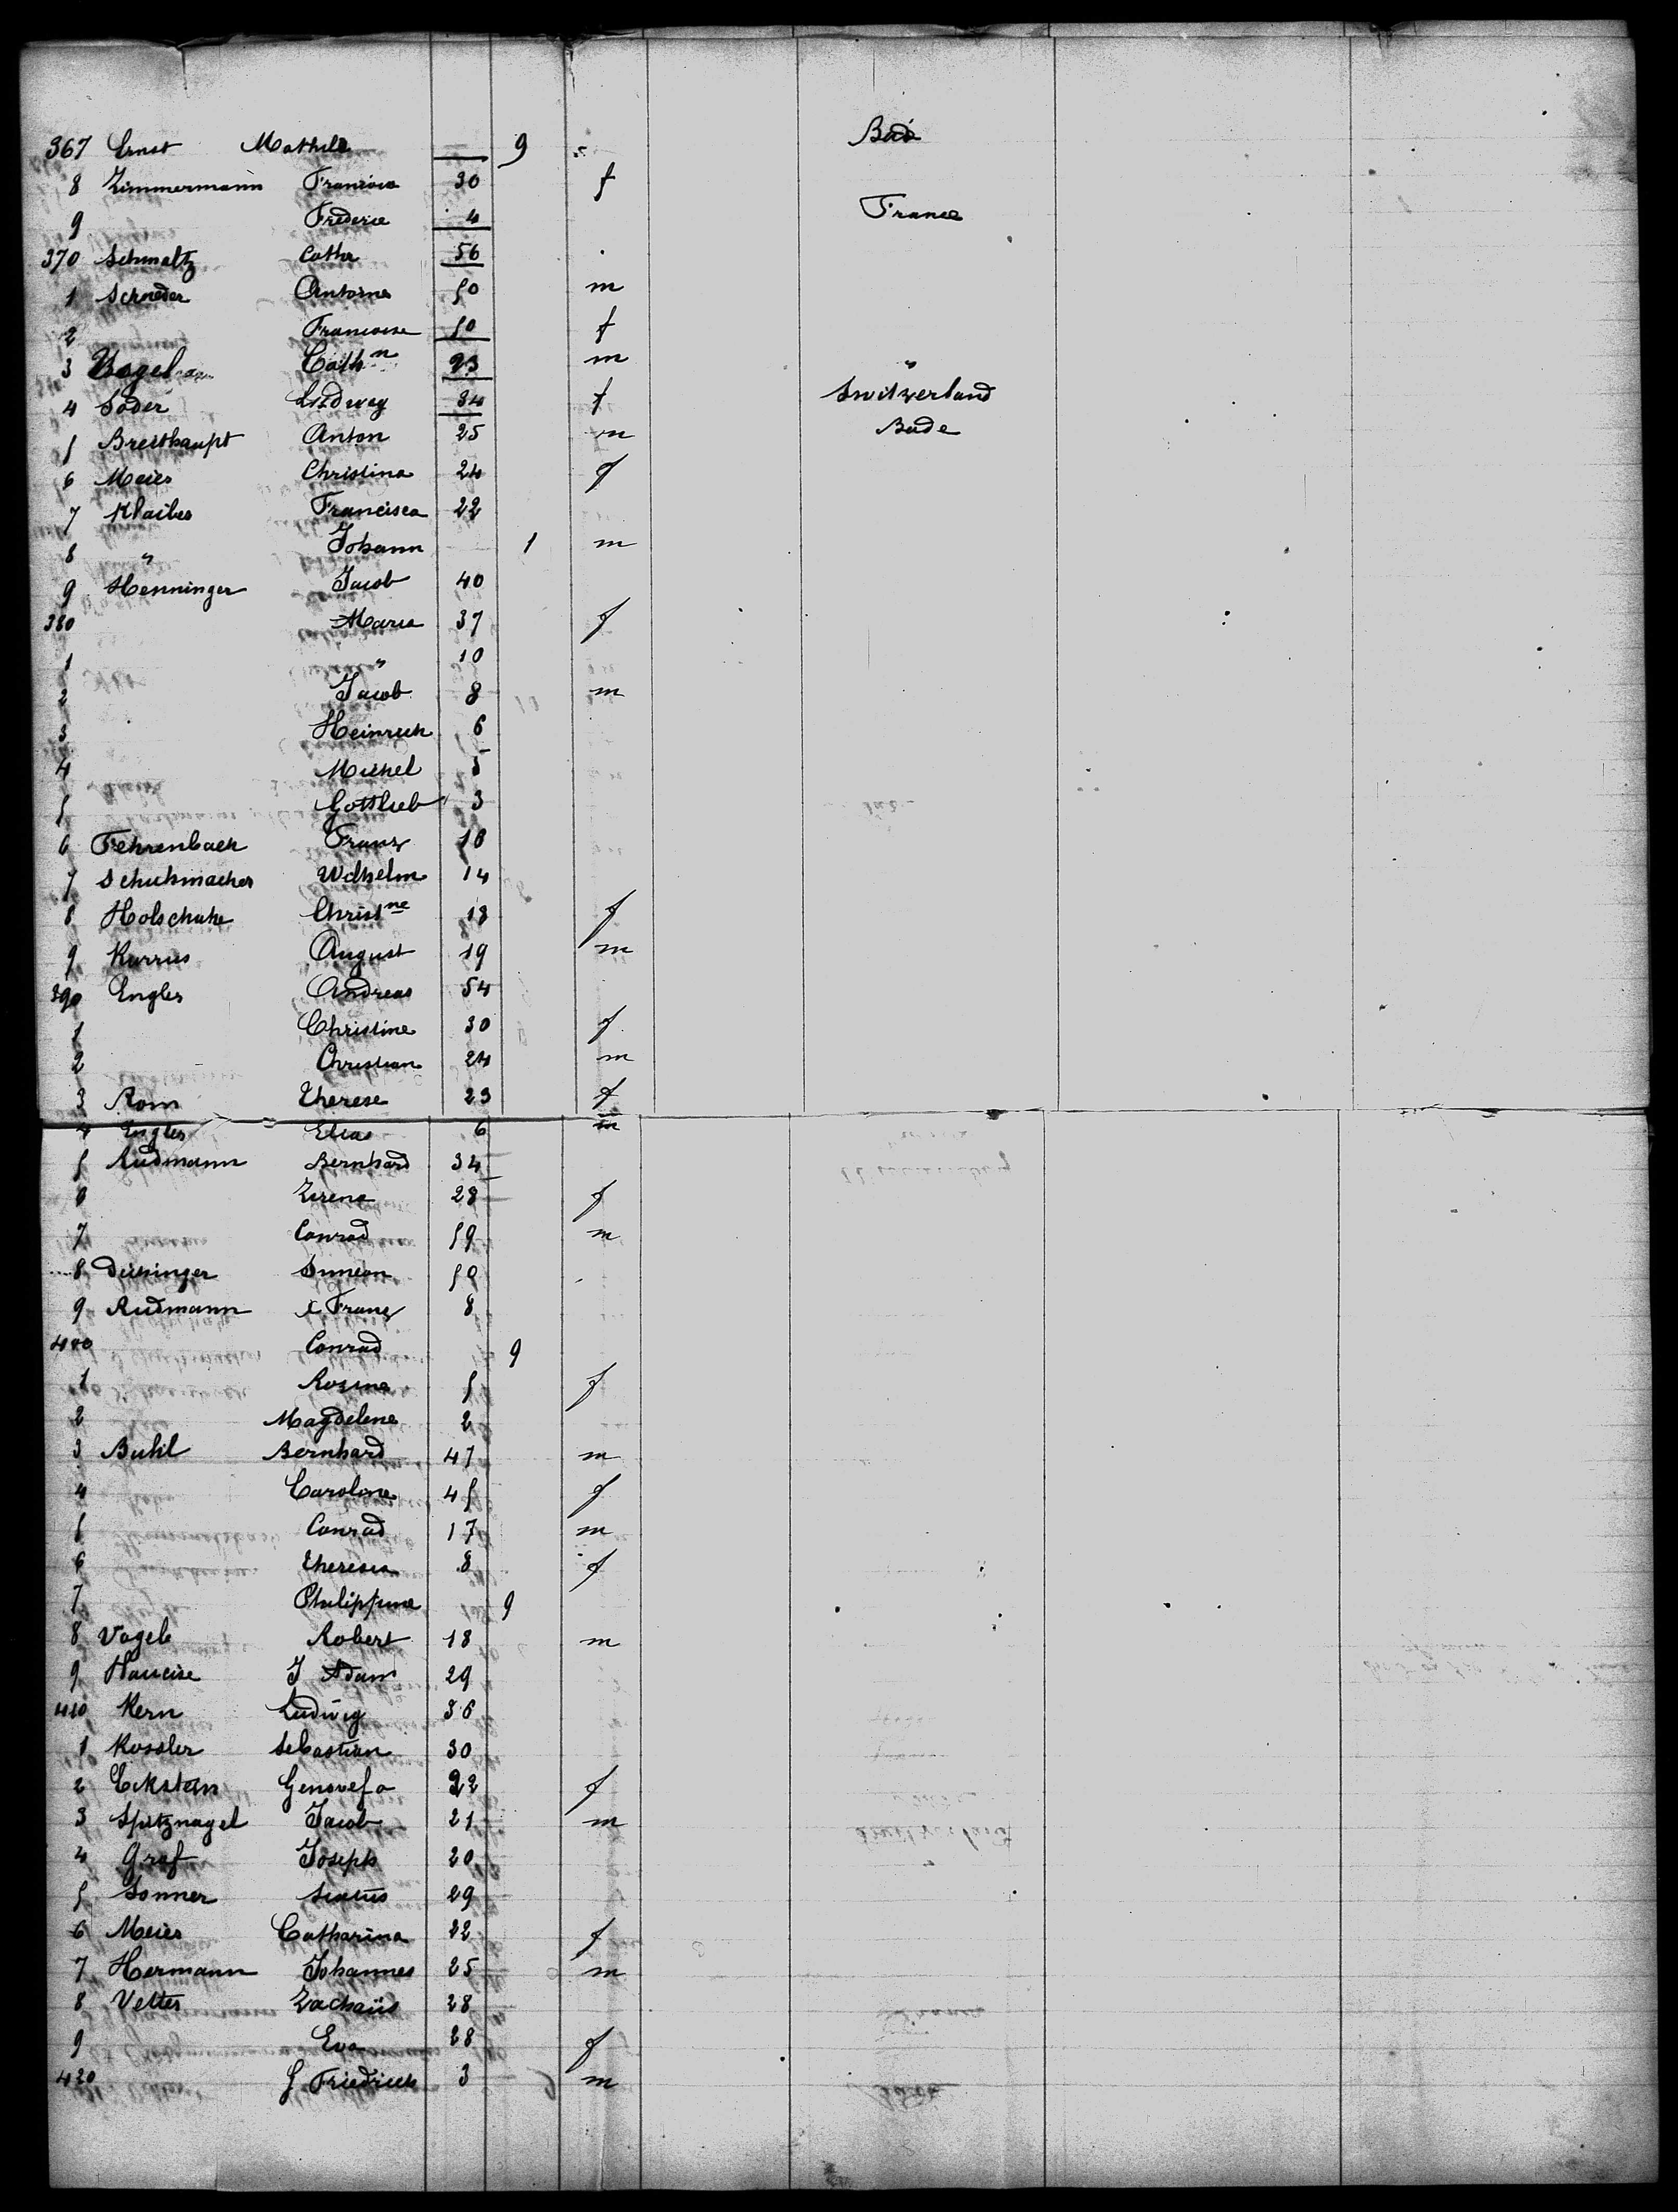 367 Ernst Mathile — 9 Bad
8 Zimmermann 30 f
9 Frederic 4 France
370 Schmaltz Cathe 56
1 Schneder Antoine 50 m
2 Francoise 50 f
3 Cathn 23 m "
4 Soder Ludwig 34 f Switzerland
5 Breithaupt Anton 25 m Bade
6 Meier Christina 24 f
7 Klaiber Francisca 22
8 " Johann 1 m
9 Henninger Jacob 40
380 Maria 37 f
1 " 10
2 Jacob 8 m
3 Heinrich 6
4 Michel 5
5 Gottlieb 3
6 Fehrenbach Franz
7 Schuhmacher Wilhelm 14
8 Holschuhe Christne 18 f
9 Karrus August 19 m
390 Engler Andreas 54
1 Christine 30 f
2 Christian 24 m
3 Rom Therese 23 f
4 Engler Elias 6 m
5 Rudmann Bernhard 34
6 Zerena 28 f
7 Conrad 59 m
8 Simeon 50
9 Rudmann X Franz 8
400 Conrad 9
1 Rosina 5 f
2 Magdelene 2
3 Buhl Bernhard 47 m
4 Caroline 45 f
5 Conrad 17 m
6 Theresia 8 f
7 Philippine 9
8 Vogele Robert 18 m
9 J Adam 29
410 Kern Ludwig 36
1 Kossler Sebastian 30
2 Eckstein Genovefa 22 f
3 Spitznagel Jacob 21 m
4 Graf Joseph 20
5 Sonner Sixtus 29
6 Meier Catharina 22 f
7 Hermann Johannes 25 m
8 Vetter Zachaüs 28
9 Eva 28 f
420 G Friedrich 3 m